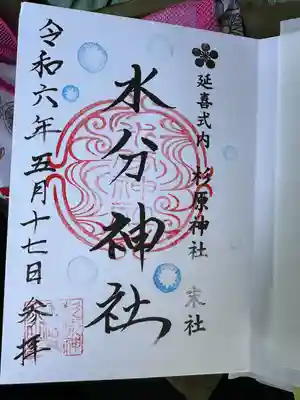 延喜式内 杉原神社 末社
水分神社
令和六年五月十七日 参拝